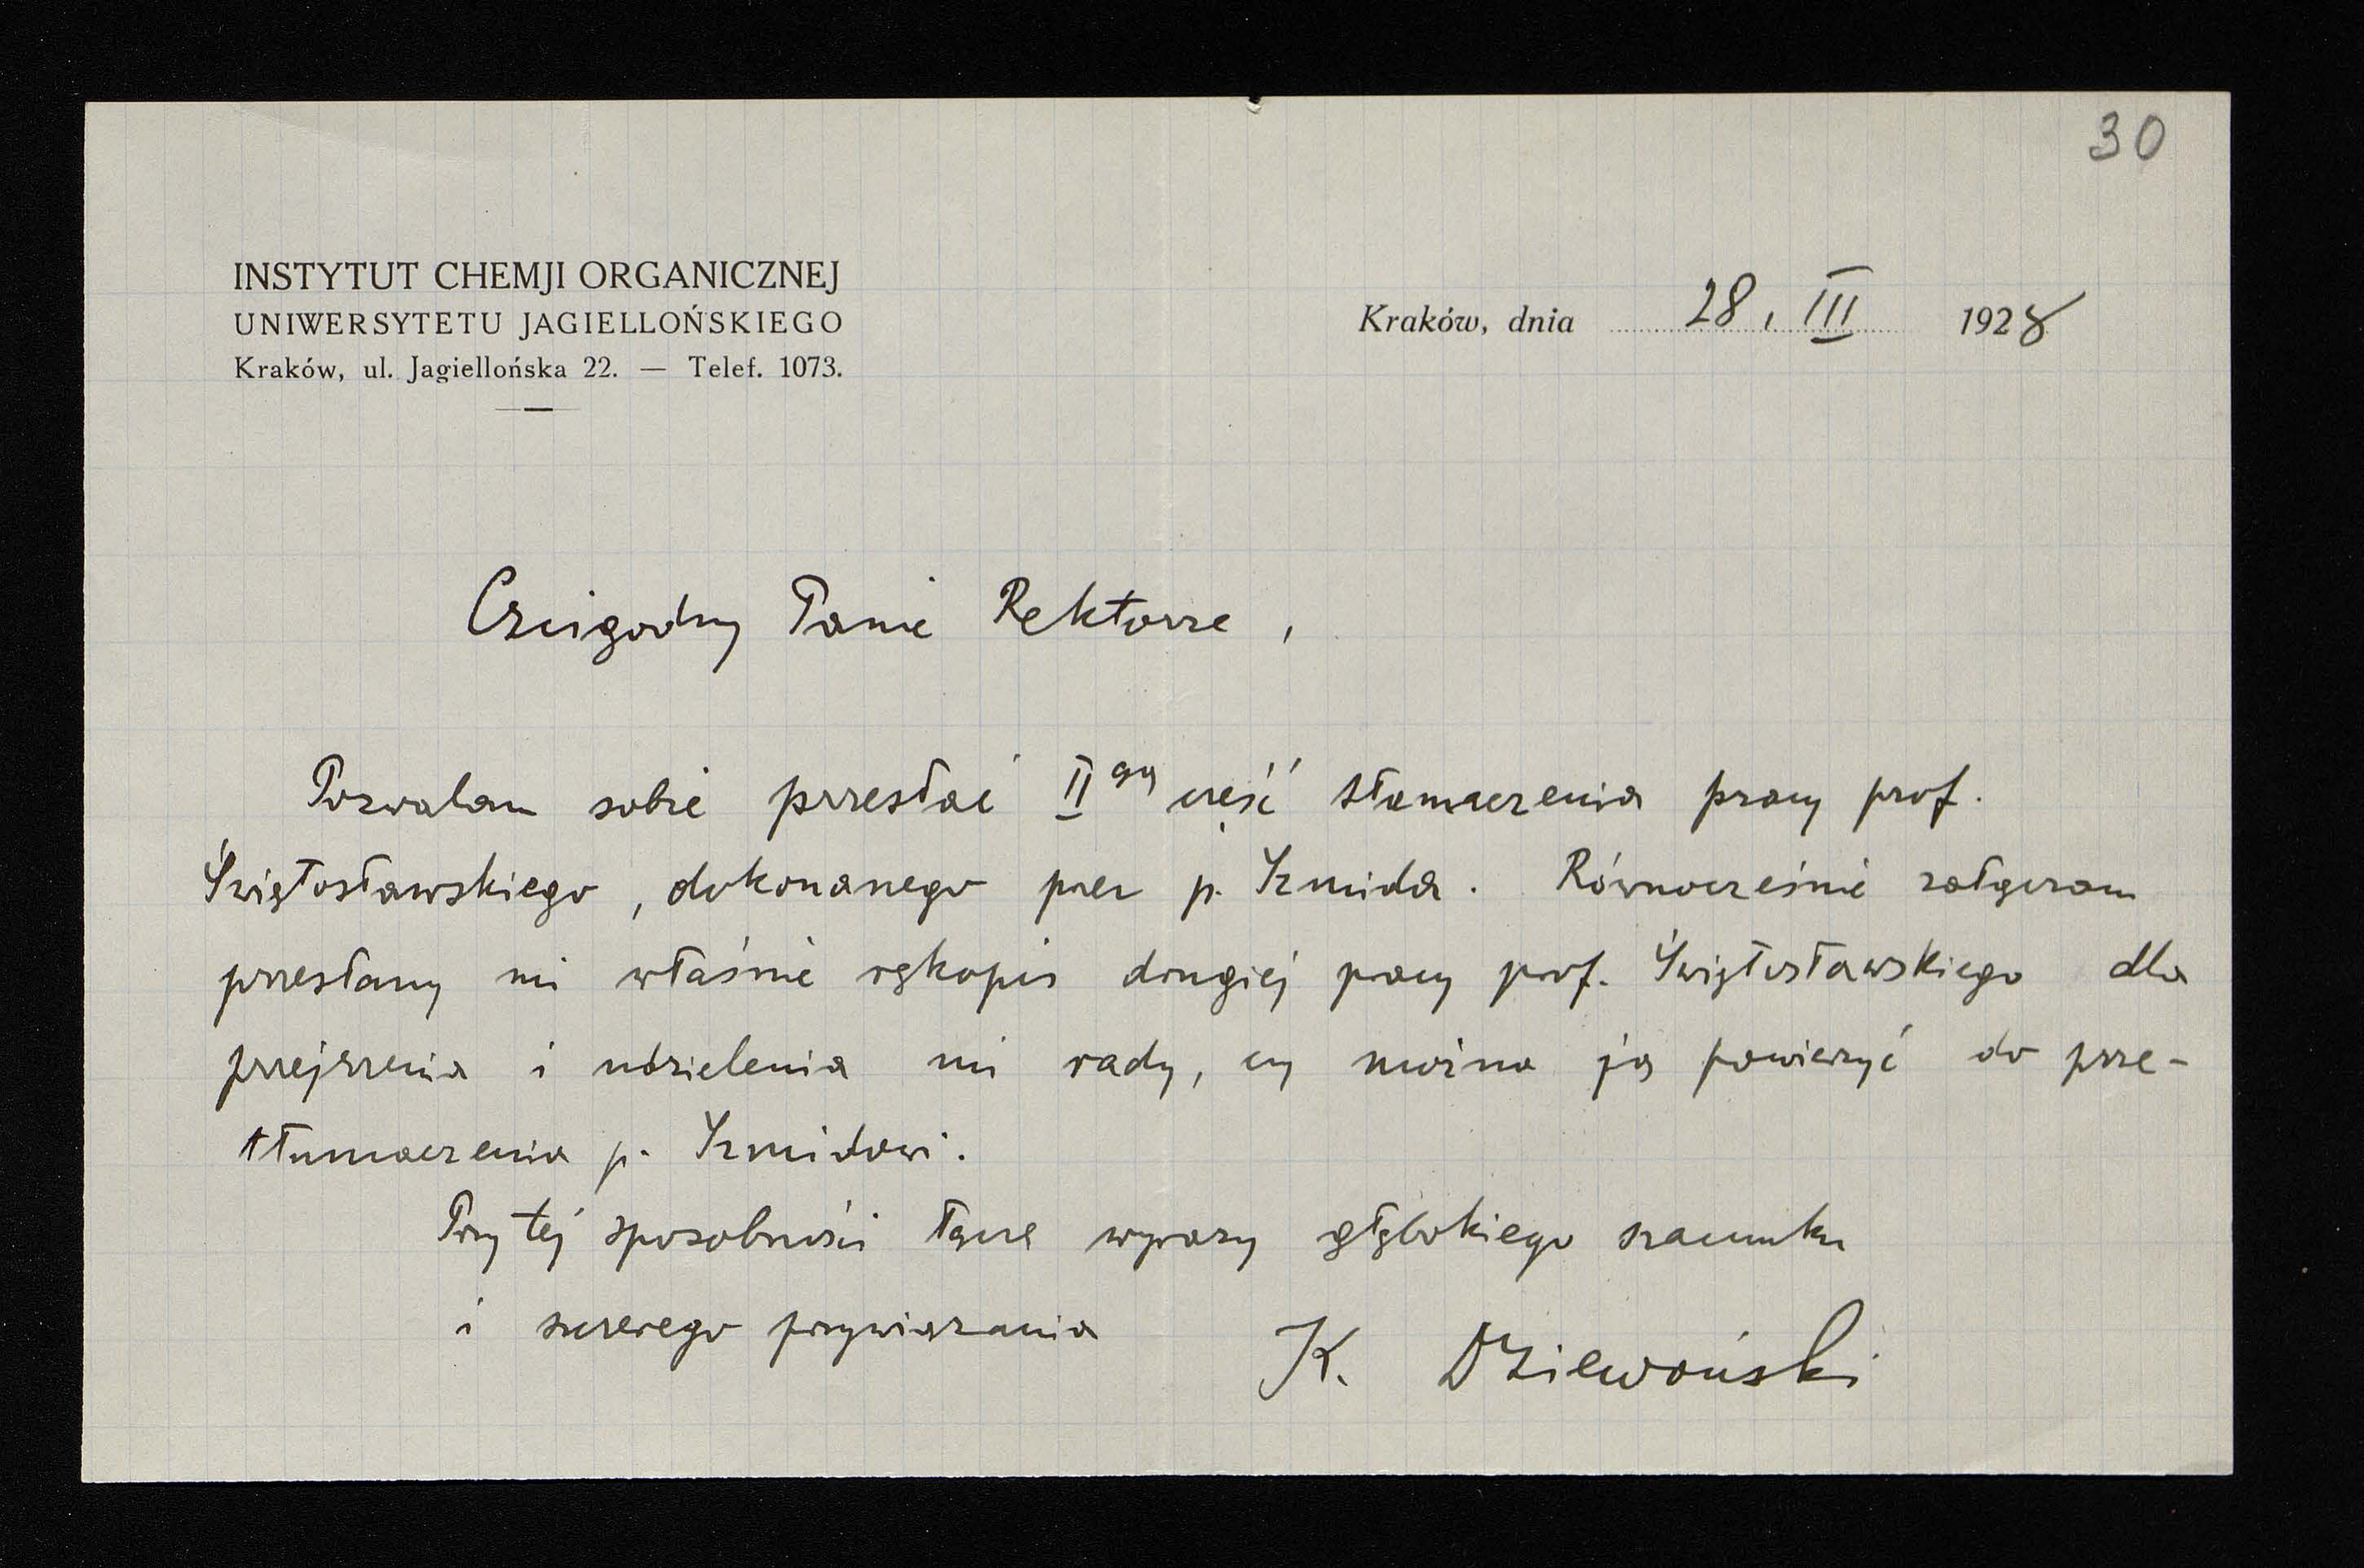 30
INSTYTUT CHEMJI ORGANICZNEJ
UNIWERSYTETU JAGIELLOŃSKIEGO
Kraków, ul. Jagiellońska 22. — Telef. 1073.
Kraków, dnia 28. III 1928
Czcigodny Panie Rektorze,
Pozwalam sobie przesłać II gą część tłumaczenia pracy prof.
Świętosławskiego, dokonanego przez p. Szmida. Równocześnie załączam
przesłany mi właśnie rękopis drugiej pracy prof. Świętosławskiego dla
przejrzenia i udzielenia mi rady, czy można ją powierzyć do prze-
tłumaczenia p. Szmidowi.
Przy tej sposobności łączę wyrazy głębokiego szacunku
i szczerego przywiązania
K. Dziewoński